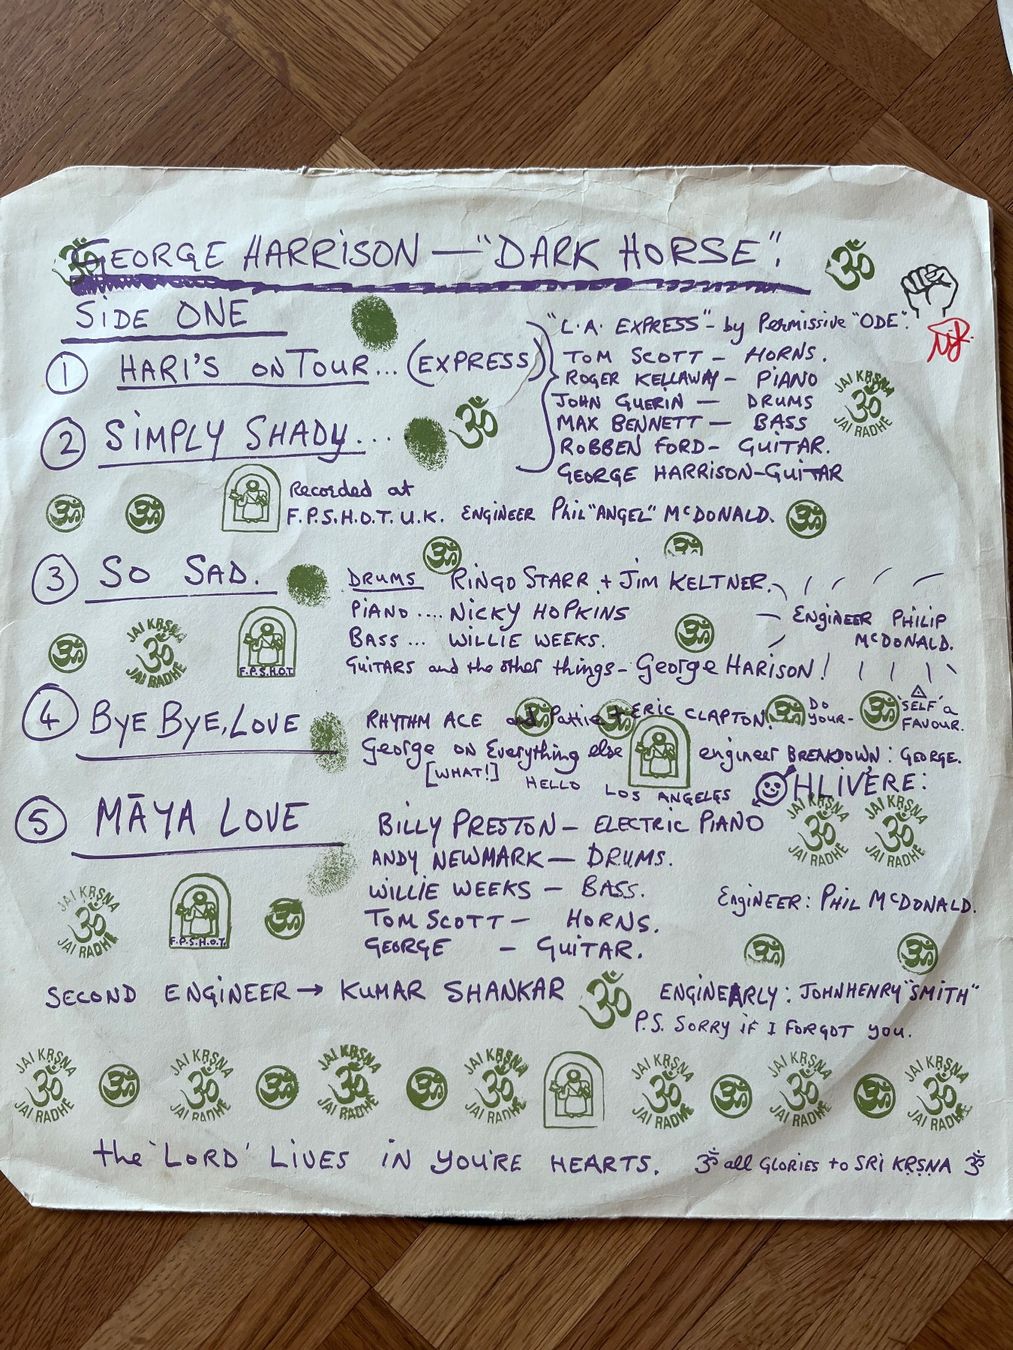 GEORGE HARRISON — "DARK HORSE".
SIDE ONE
① HARI'S ON TOUR... (EXPRESS)
② SIMPLY SHADY...
"L.A. EXPRESS" - by Permissive "ODE".
TOM SCOTT — HORNS.
ROGER KELLAWAY — PIANO
JOHN GUERIN — DRUMS
MAX BENNETT — BASS
ROBBEN FORD — GUITAR.
GEORGE HARRISON — GUITAR
JAI KṚṢṆA
ॐ
JAI RADHE
Recorded at
F.P.S.H.O.T. U.K. ENGINEER Phil "ANGEL" McDONALD.
③ SO SAD.
DRUMS RINGO STARR + JIM KELTNER.
PIANO .... NICKY HOPKINS
BASS ... WILLIE WEEKS.
GUITARS and the other things - George HARISON!
Engineer PHILIP
McDONALD.
JAI KṚṢṆA
ॐ
JAI RADHE
F.P.S.H.O.T.
④ BYE BYE, LOVE
RHYTHM ACE and Pattie + ERIC CLAPTON
DO YOUR- 'SELF' a FAVOUR.
George on Everything else engineer BREAKDOWN: GEORGE.
[WHAT!] HELLO LOS ANGELES
OHLIVERE:
⑤ MĀYA LOVE
BILLY PRESTON — ELECTRIC PIANO
ANDY NEWMARK — DRUMS.
WILLIE WEEKS — BASS.
TOM SCOTT — HORNS.
GEORGE — GUITAR.
JAI KṚṢṆA ॐ JAI RADHE
JAI KṚṢṆA ॐ JAI RADHE
Engineer: PHIL McDONALD.
JAI KṚṢṆA
ॐ
JAI RADHE
F.P.S.H.O.T.
SECOND ENGINEER → KUMAR SHANKAR ॐ ENGINEARLY: JOHN HENRY "SMITH"
P.S. SORRY if I FORGOT you.
JAI KṚṢṆA ॐ JAI RADHE ॐ JAI KṚṢṆA ॐ JAI RADHE ॐ JAI KṚṢṆA ॐ JAI RADHE ॐ JAI KṚṢṆA ॐ JAI RADHE JAI KṚṢṆA ॐ JAI RADHE ॐ JAI KṚṢṆA ॐ JAI RADHE ॐ JAI KṚṢṆA ॐ JAI RADHE
the 'LORD' LIVES IN YOU'RE HEARTS. ॐ all GLORIES to SRI KṚṢṆA ॐ